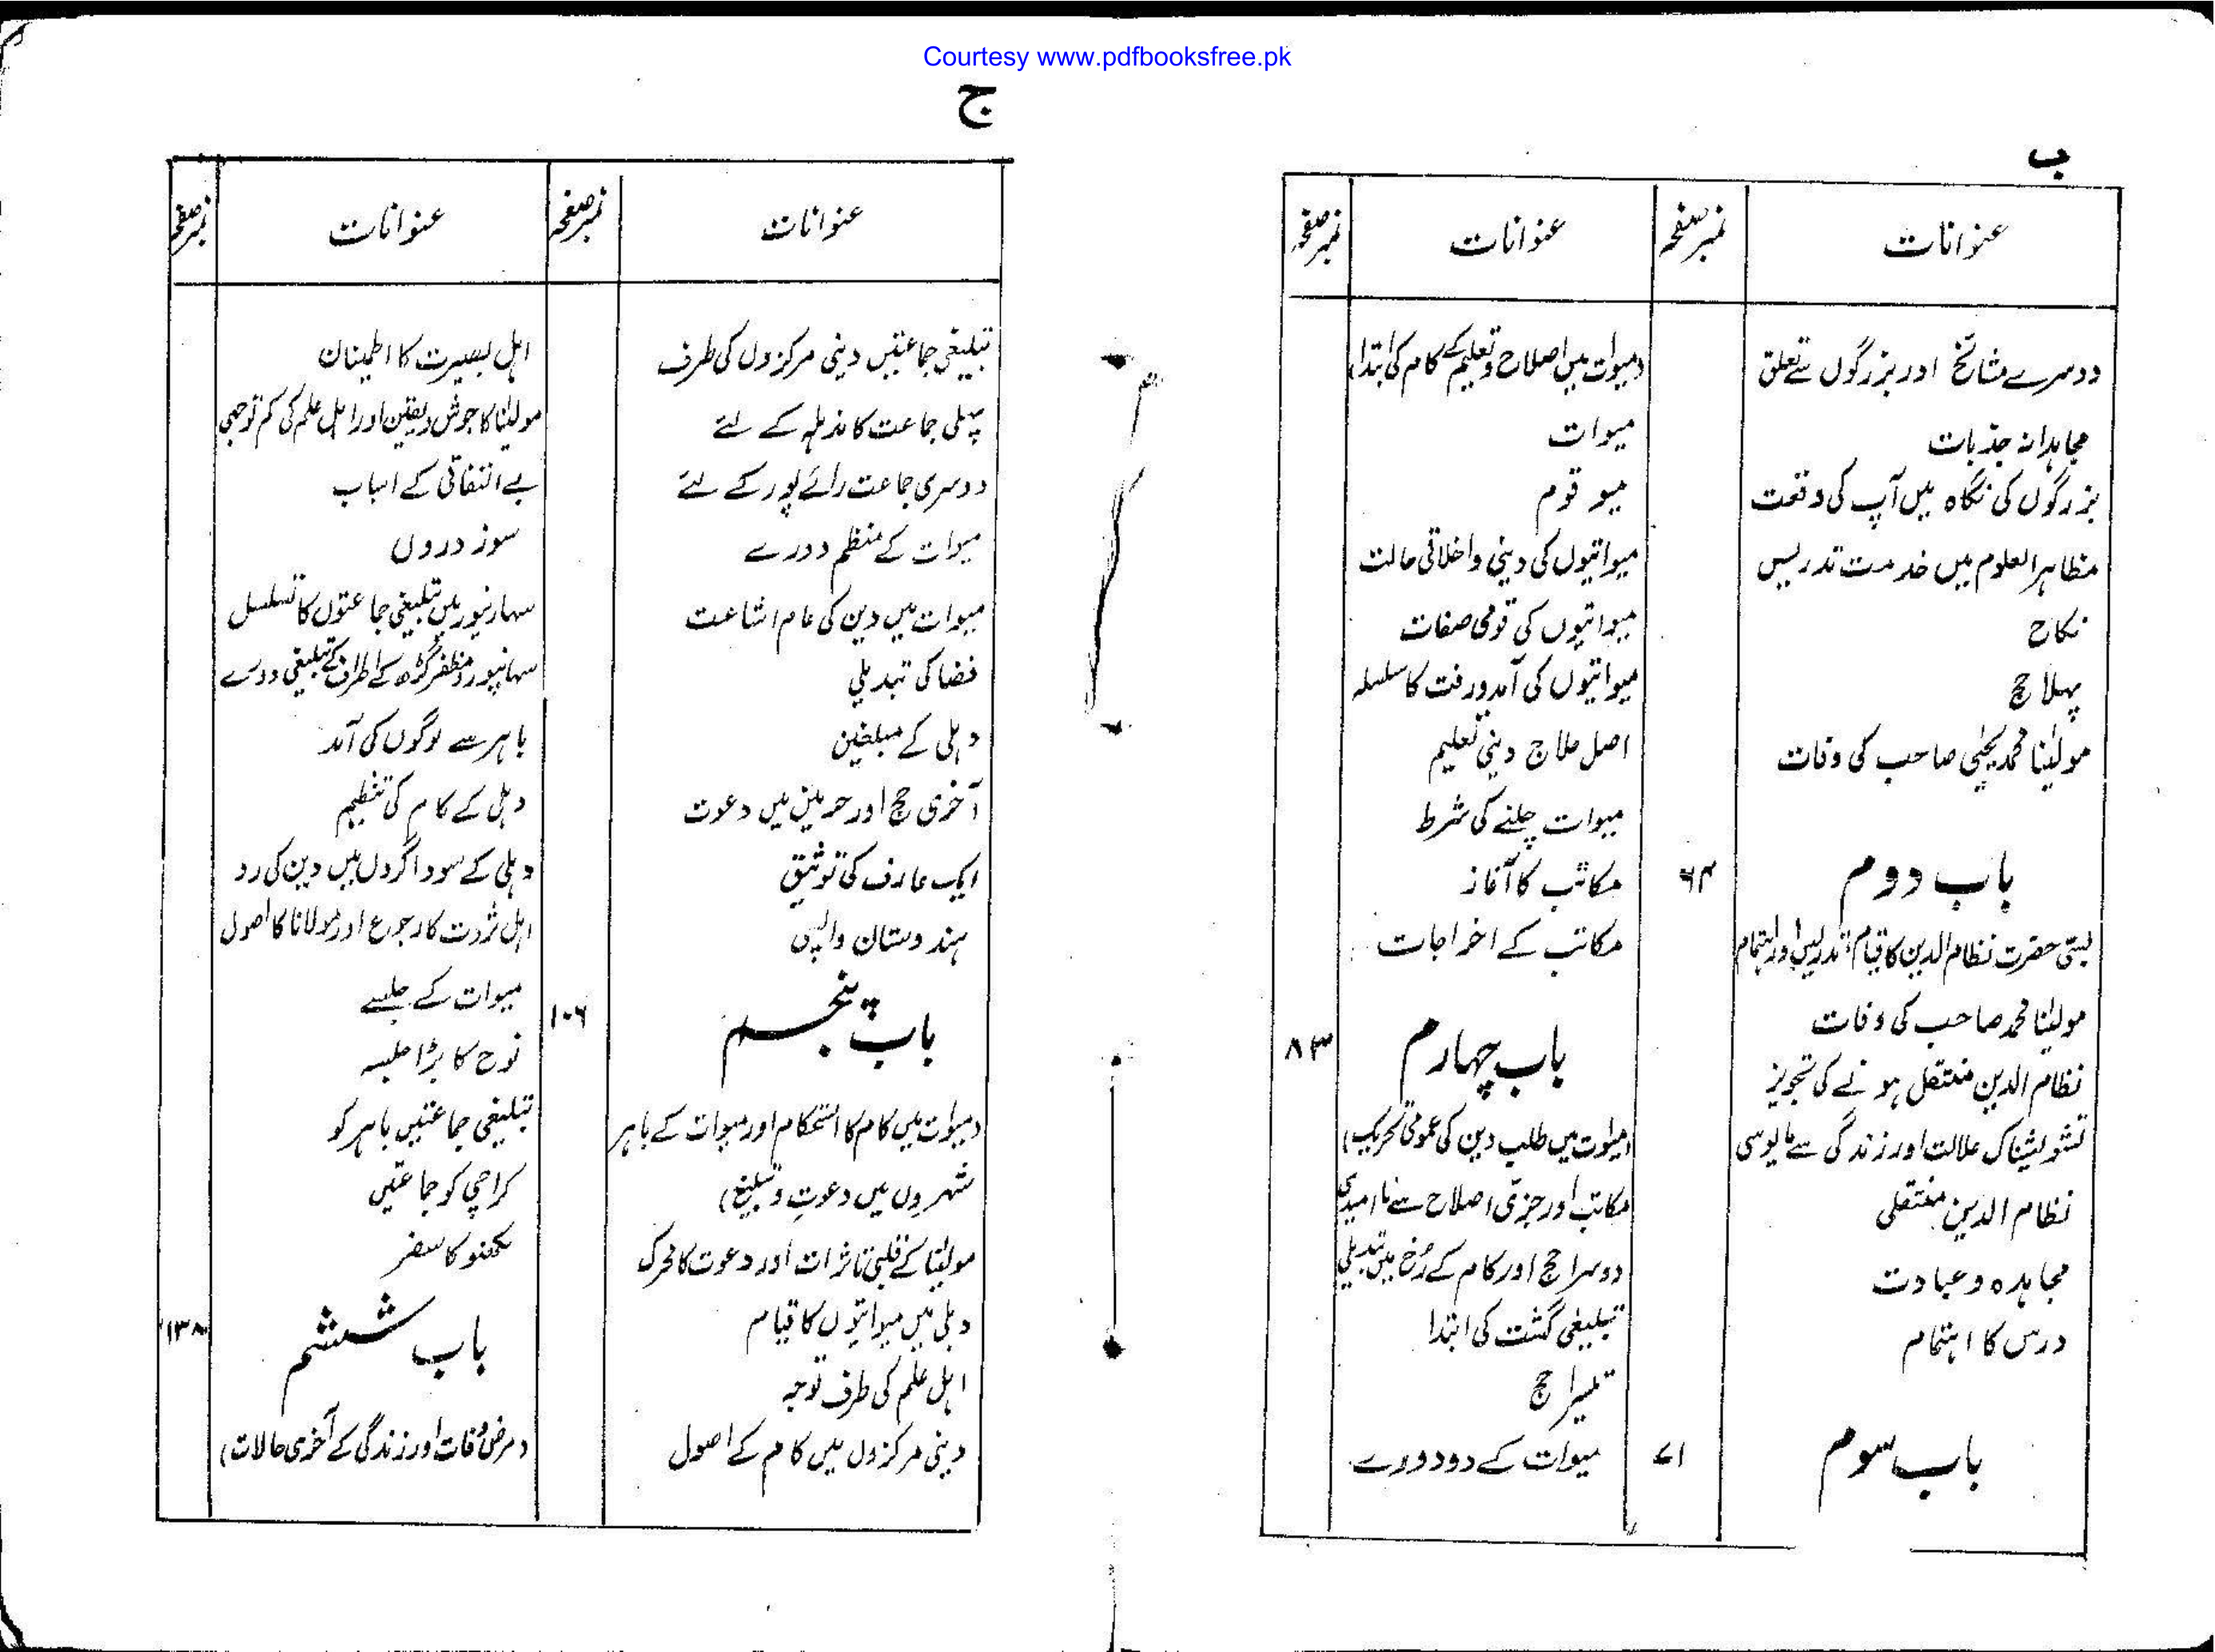 Courtesy www.pdfbooksfree.pk
ب
عنوانات
نمبر صفحہ
عنوانات
نمبر صفحہ
دوسرے مشائخ اور بزرگوں سے تعلق
مجاہدانہ جذبات
بزرگوں کی نگاہ میں آپ کی وقعت
مظاہر العلوم میں خدمت تدریس
نکاح
پہلا حج
مولیٰنا محمد یحییٰ صاحب کی وفات
باب دوم ۶۴
بستی حضرت نظام الدین کا قیام، تدریس اور اہتمام
مولیٰنا محمد صاحب کی وفات
نظام الدین منتقل ہونے کی تجویز
تشویشناک علالت اور زندگی سے مایوسی
نظام الدین منتقلی
مجاہدہ و عبادت
درس کا اہتمام
باب سوم ۷۱
(میوات میں اصلاح و تعلیم کے کام کی ابتداء)
میوات
میو قوم
میواتیوں کی دینی و اخلاقی حالت
میواتیوں کی قومی صفات
میواتیوں کی آمدورفت کا سلسلہ
اصل علاج دینی تعلیم
میوات چلنے کی شرط
مکاتب کا آغاز
مکاتب کے اخراجات
باب چہارم ۸۳
(میوات میں طلب دین کی عمومی تحریک)
مکاتب اور جزئی اصلاح سے ناامیدی
دوسرا حج اور کام کے رُخ میں تبدیلی
تبلیغی گشت کی ابتدا
تیسرا حج
میوات کے دو دورے
ج
عنوانات
نمبر صفحہ
عنوانات
نمبر صفحہ
تبلیغی جماعتیں دینی مرکزوں کی طرف
پہلی جماعت کاندہلہ کے لئے
دوسری جماعت رائے پور کے لئے
میوات کے منظم دورے
میوات میں دین کی عام اشاعت
فضا کی تبدیلی
دہلی کے مبلغین
آخری حج اور حرمین میں دعوت
ایک عارف کی توثیق
ہندوستان واپسی
باب پنجم ۱۰۶
(میوات میں کام کا استحکام اور میوات کے باہر
شہروں میں دعوت و تبلیغ)
مولیٰنا کے قلبی تاثرات اور دعوت کا محرک
دہلی میں میواتیوں کا قیام
اہل علم کی طرف توجہ
دینی مرکزوں میں کام کے اصول
اہل بصیرت کا اطمینان
مولیٰنا کا جوش و یقین اور اہل علم کی کم توجہی
بے التفاتی کے اسباب
سوز دروں
سہارنپور میں تبلیغی جماعتوں کا تسلسل
سہانپور و مظفر گڑھ کے اطراف کے تبلیغی دورے
باہر سے لوگوں کی آمد
دہلی کے کام کی تنظیم
دہلی کے سوداگروں میں دین کی رو
اہل ثروت کا رجوع اور مولانا کا اصول
میوات کے جلسے
نوح کا بڑا جلسہ
تبلیغی جماعتیں باہر کو
کراچی کو جماعتیں
لکھنو کا سفر
باب ششم ۱۳۸
(مرض وفات اور زندگی کے آخری حالات)